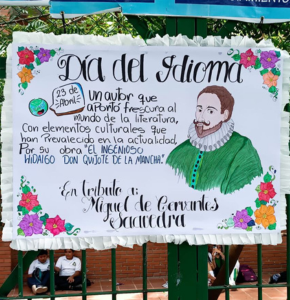 Día del Idioma
23 de Abril
un autor que
aportó frescura al
mundo de la literatura,
Con elementos culturales que
han Prevalecido en la actualidad
Por su obra "EL INGENIOSO
HIDALGO DON QUIJOTE DE LA MANCHA."
En tributo a:
Miguel de Cervantes
Saavedra